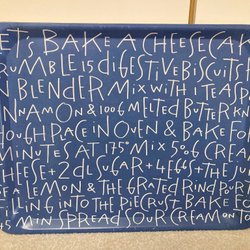 ET'S BAKE A CHEESECA
RUMBLE 15 DIGESTIVE BISCUITS
N BLENDER MIX WITH 1 TEASP
NAMON & 100G MELTED BUTTER KN
OUGH PLACE IN OVEN & BAKE FO
MINUTES AT 175° MIX 500G CREAM
CHEESE + 2 DL SUGAR + 4 EGGS + THE JU
E A LEMON & THE GRATED RIND POUR
LLING INTO THE PIECRUST BAKE FO
5 MIN SPREAD SOUR CREAM ON T